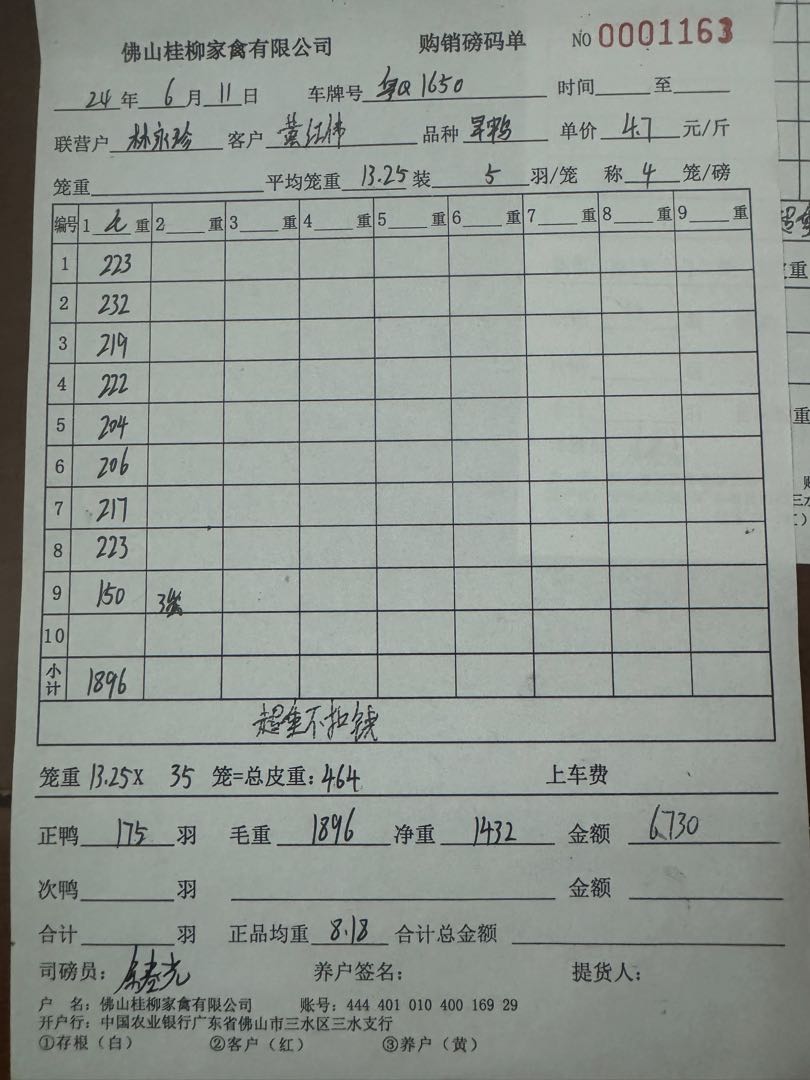 佛山桂柳家禽有限公司 购销磅码单 NO 0001163
24 年 6 月 11 日 车牌号 粤Q1650 时间 至
联营户 林永珍 客户 黄红伟 品种 旱鸭 单价 4.7 元/斤
笼重 平均笼重 13.25 装 5 羽/笼 称 4 笼/磅
编号 1 毛 重 2 重 3 重 4 重 5 重 6 重 7 重 8 重 9 重
1 223
2 232
3 219
4 222
5 204
6 206
7 217
8 223
9 150 3笼
10
小计 1896
超重不扣钱
笼重 13.25X 35 笼=总皮重: 464 上车费
正鸭 175 羽 毛重 1896 净重 1432 金额 6730
次鸭 羽 金额
合计 羽 正品均重 8.18 合计总金额
司磅员: 养户签名: 提货人:
户 名: 佛山桂柳家禽有限公司 账号: 444 401 010 400 169 29
开户行: 中国农业银行广东省佛山市三水区三水支行
①存根(白) ②客户(红) ③养户(黄)